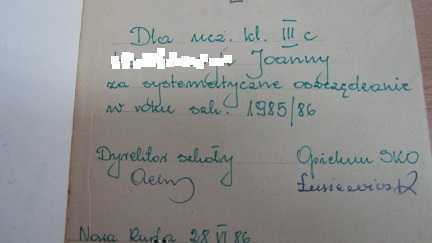 Dla ucz. kl. III c
Joanny
za systematyczne oszczędzanie
w roku szk. 1985/86
Dyrektor szkoły Opiekun SKO
Nowa Ruda 28 VI 86